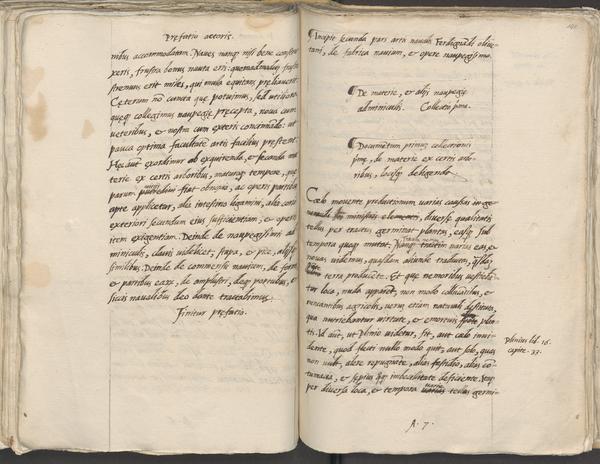 Prefatio actoris.
nibus accommodatam. Naves nanq; nisi bene constru
xeris, frustra bonus nauta erit: quemadmodum frustra
strenuus erit miles, qui mula equitans preliaverit.
Ceterum nõ cuncta que potuimus, sed utiliora
queq; collegimus naupegie precepta, nova cum
veteribus, et nostra cum exteris concinnãdo: ut
pauca optima facultate artis facilius prestent.
Hec aut exordimur ab exquirenda, et secanda ma
terie ex certis arboribus, maturoq; tempore, que
parum putredini fiat obnoxia, ac operis partibus
apte applicetur, alia intestino legamini, alia vero
exteriori secundum eius sufficientiam, et operis
item exigentiam. Deinde de naupegissimis ad
miniculis, clavis videlicet, stupa, et pice, aliisq;
similibus. Deinde de commensu navium, de forma
et partibus earum, de amplustri, deq; portubus, et
sicas navalibus deo dante tractabimus.
Finitur prefatio.
Incipit secunda pars artis navalis Ferdinãdi olive
rani, de fabrica navium, et opere naupegissimo.
De materie, et aliis naupegie
adminiculis. Collectio prima.
Documentum primum collectionis
prime, de materie ex certis arbo-
ribus, locisq; deligenda.
Caelo movente productionum varias causas in ge
elementis, diverse qualitatis
tellus per tractus germinat plantas, easq; sub
tempora quoq; mutat. Nanq; varias eas, et
novas videmus, quasdam aliunde traductas,
terra producere. Et que nemoribus vestieban
tur loca, nuda apparent, non modo collucantibus, et
runcantibus agricolis, verum etiam naturali destituta,
qua nutriebantur virtute, et emortuis sponte plan
tis. Id aut, ut Plinio videtur, fit, aut caeli invi
dentia, quod siccari nullo modo quit, aut soli, quas
non vult, alere repugnante, alias fastidio, alias con
tumacia, et sepius imbecillitate deficiente. Nanq;
per diversa loca, et tempora tellus germi-
Plinius lib. 16.
capite. 33.
A. 7.